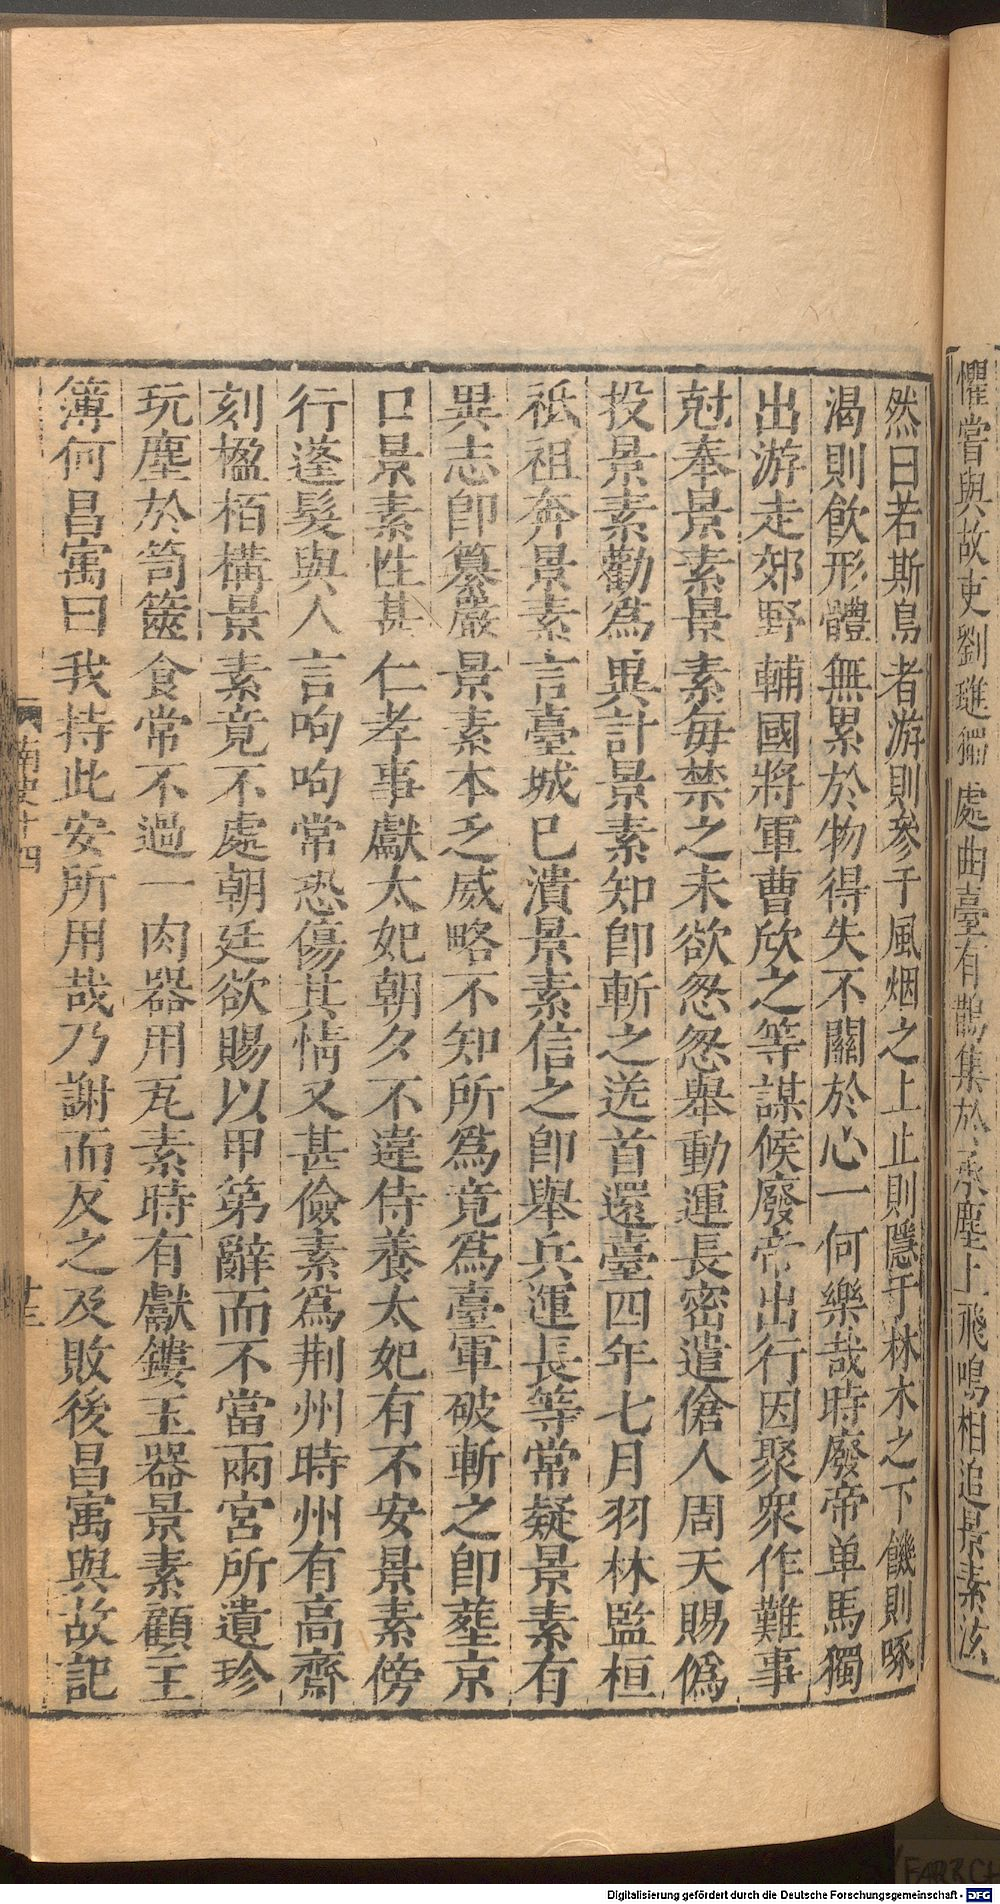 懼嘗與故吏劉璡獨處曲臺有鵲集於承塵上飛鳴相追景素泫
然曰若斯鳥者游則參于風烟之上止則隱于林木之下饑則啄
渴則飮形體無累於物得失不關於心一何樂哉時廢帝单馬獨
出游走郊野輔國將軍曹欣之等謀候廢帝出行因聚衆作難事
尅奉景素景素每禁之未欲怱怱舉動運長密遣傖人周天賜僞
投景素勸爲異計景素知卽斬之送首還臺四年七月羽林監桓
祗祖奔景素言臺城已潰景素信之卽舉兵運長等常疑景素有
異志卽纂嚴景素本乏威略不知所爲竟爲臺軍破斬之卽葬京
口景素性甚仁孝事獻太妃朝夕不違侍養太妃有不安景素傍
行蓬髮與人言呴呴常恐傷其情又甚儉素爲荆州時州有高齋
刻楹栢構景素竟不處朝廷欲賜以甲第辭而不當兩宮所遺珍
玩塵於笥篋食常不過一肉器用瓦素時有獻鏤玉器景素顧主
簿何昌寓曰我持此安所用哉乃謝而反之及敗後昌寓與故記
南史十四
十三
Digitalisierung gefördert durch die Deutsche Forschungsgemeinschaft - DFG